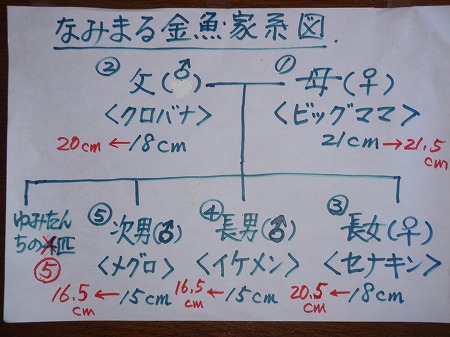 なみまる金魚家系図.
② 父(♂) ① 母(♀)
<クロバナ> <ビッグママ>
20cm ← 18cm 21cm → 21.5cm
ゆみたんちの匹 ⑤
⑤ 次男(♂) ④ 長男(♂) ③ 長女(♀)
<メグロ> <イケメン> <セナキン>
16.5cm ← 15cm 16.5cm ← 15cm 20.5cm ← 18cm